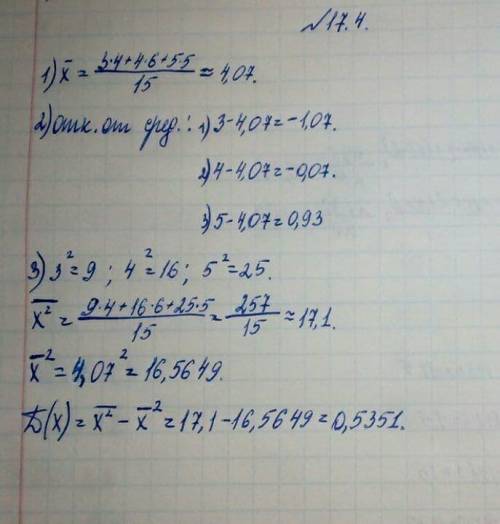 №17.4.
1) x̄ = (3·4+4·6+5·5)/15 ≈ 4,07.
2) Отк. от сред.: 1) 3-4,07=-1,07.
2) 4-4,07=-0,07.
3) 5-4,07=0,93
3) 3²=9 ; 4²=16 ; 5²=25.
x̅²̅ = (9·4+16·6+25·5)/15 = 257/15 ≈ 17,1.
x̄² = 4,07² = 16,5649.
D(x) = x̅²̅ - x̄² = 17,1-16,5649=0,5351.